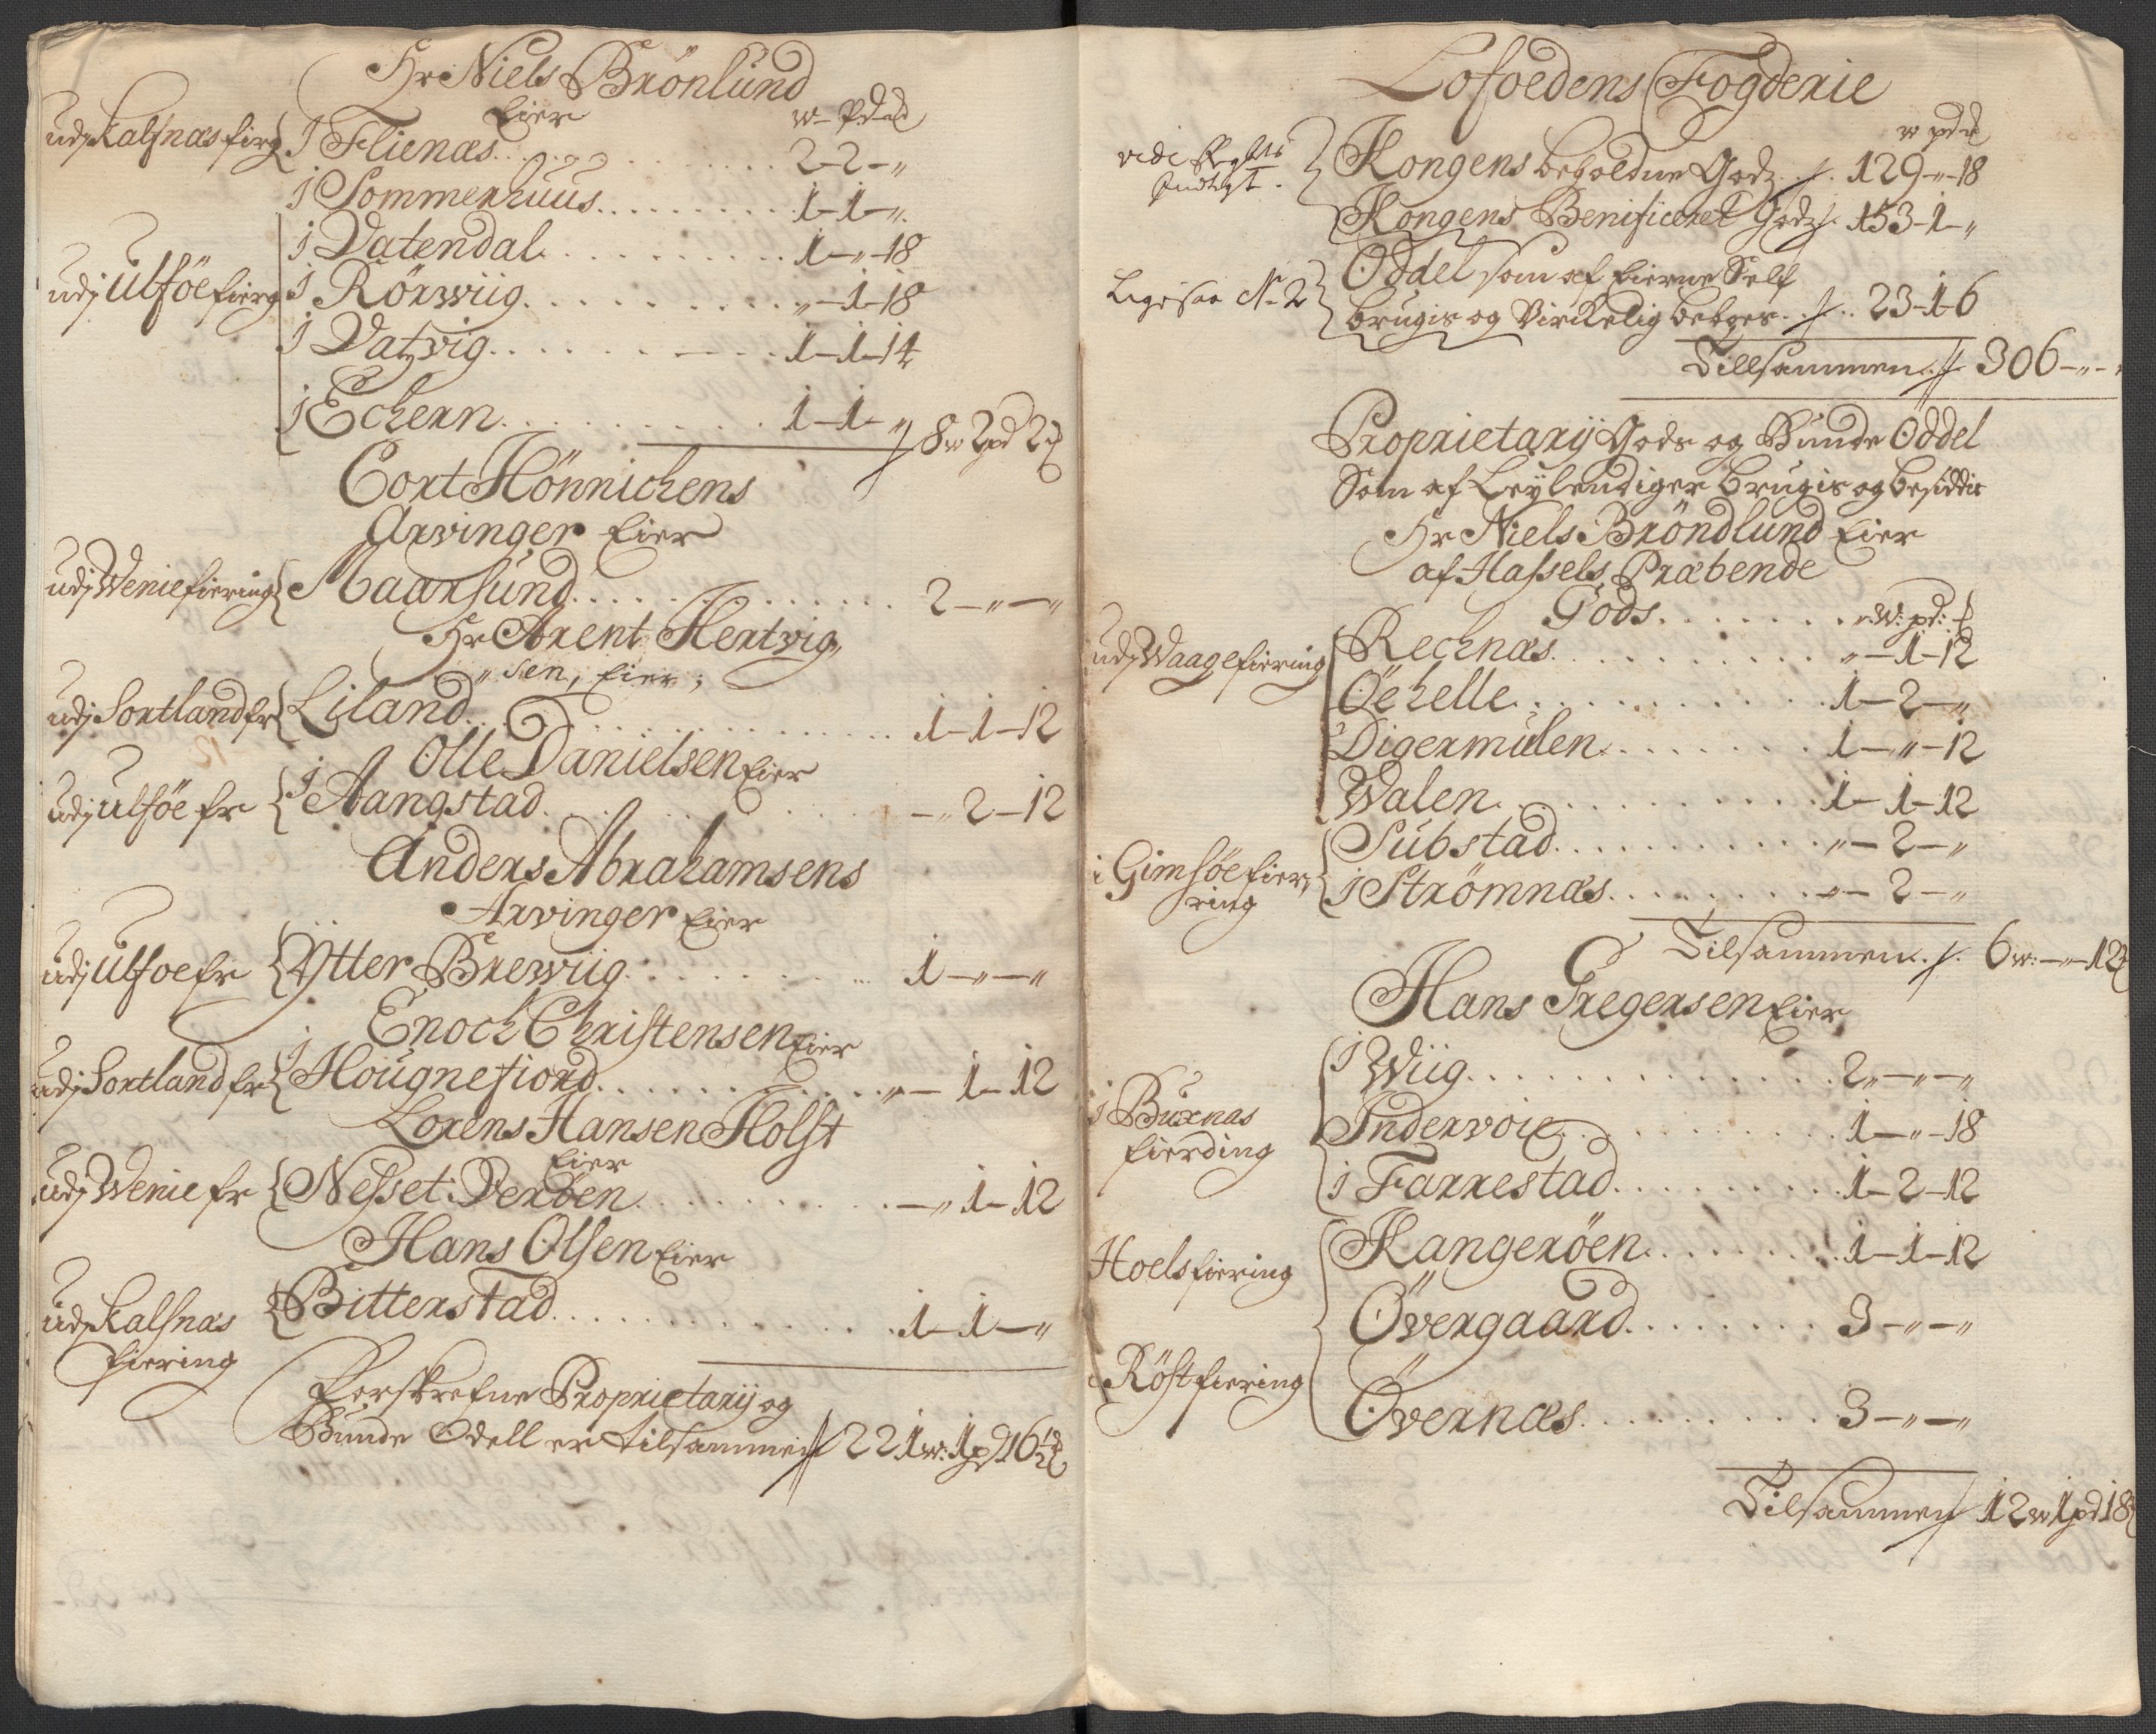 Hr Niels Brönlund
Eier
w- Pd
udj Kalsnæs fierg { j Flienæs . . . . 2-2-"
j Sommerhuus . . . . 1-1-"
j Vatendal . . . . 1-"-18
udj Ulföe fierg j Rörwiig . . . . "-1-18
j Vatvig . . . . 1-1-14
j Echern . . . . 1-1-" // 8w 2pd 2
Cort Hönnichens
Arvinger Eier
udj Wenie fiering { Maarsund . . . . 2-"-"
Hr Arent Hertvig,,
,,sen, Eier;
udj Sortland fr { Liland . . . . 1-1-12
Olle Danielsen Eier
udj Ulföe fr { j Aangstad . . . . -"2-12
Anders Abrahamsens
Arvinger Eier
udj Ulföe fr { Ytter Brewiig . . . . 1-"-"
Enoch Christensen Eier
udj Sortland fr { j Hougnefiord . . . . "-1-12
Lorens Hansen Holst
Eier
udj Wenie fr { Nesset Deröen . . . . -"1-12
Hans Olsen Eier
udj Kalsnæs { Bitterstad . . . . 1-1-"
fiering
Forskrefne Proprietarij og
Bunde Odell er tilsammen // 221w: 1pd 16½
Lofoedens Fogderie
w pd
vide { Kongens beholdne Godz . /. 129-"-18
Kongens Benificeret Godz /. 153-1-"
Ligesaa No 2 { Oddel som af Eierne Self
brugis og Virkelig bebyes . /. . 23-1-6
Tillsammen // 306-"-"
Proprietarij Gods og Bunde Oddel
Som af Leylendiger brugis og besiddis
Hr Niels Bröndlund Eier
af Hassels Præbende
Gods . . . . W: pd:
udj Waage fiering { Rechnæs . . . . "-1-12
Öehelle . . . . 1-2-"
Digermulen . . . . 1-"-12
Walen . . . . 1-1-12
i Gimsöe fier, { Substad . . . . "-2-"
ring j Strömnæs . . . . "-2-"
Tilsammen . /. 6w:-"-12
Hans Gregersen Eier
j Wiig . . . . 2"-"-"
j Buxnas { Indervoie . . . . 1-"-18
fierding j Farrestad . . . . 1-2-12
Hoels fiering { Kangeröen . . . . 1-1-12
Övergaard . . . . 3-"-"
i Röst fiering Övernæs . . . . 3-"-"
Tilsammen // 12w 1pd 18